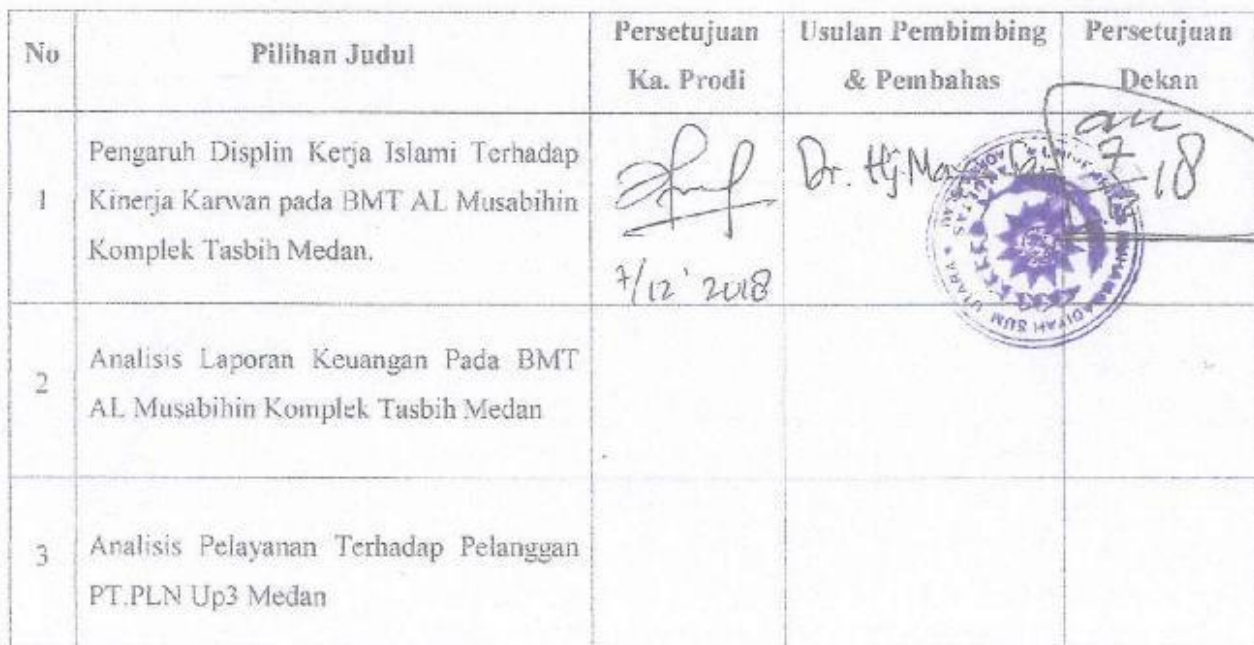 No
Pilihan Judul
Persetujuan
Ka. Prodi
Usulan Pembimbing
& Pembahas
Persetujuan
Dekan
1
Pengaruh Displin Kerja Islami Terhadap
Kinerja Karwan pada BMT AL Musabihin
Komplek Tasbih Medan.
7/12' 2018
Dr. Hj
18
UTARA
2
Analisis Laporan Keuangan Pada BMT
AL Musabihin Komplek Tasbih Medan
3
Analisis Pelayanan Terhadap Pelanggan
PT.PLN Up3 Medan